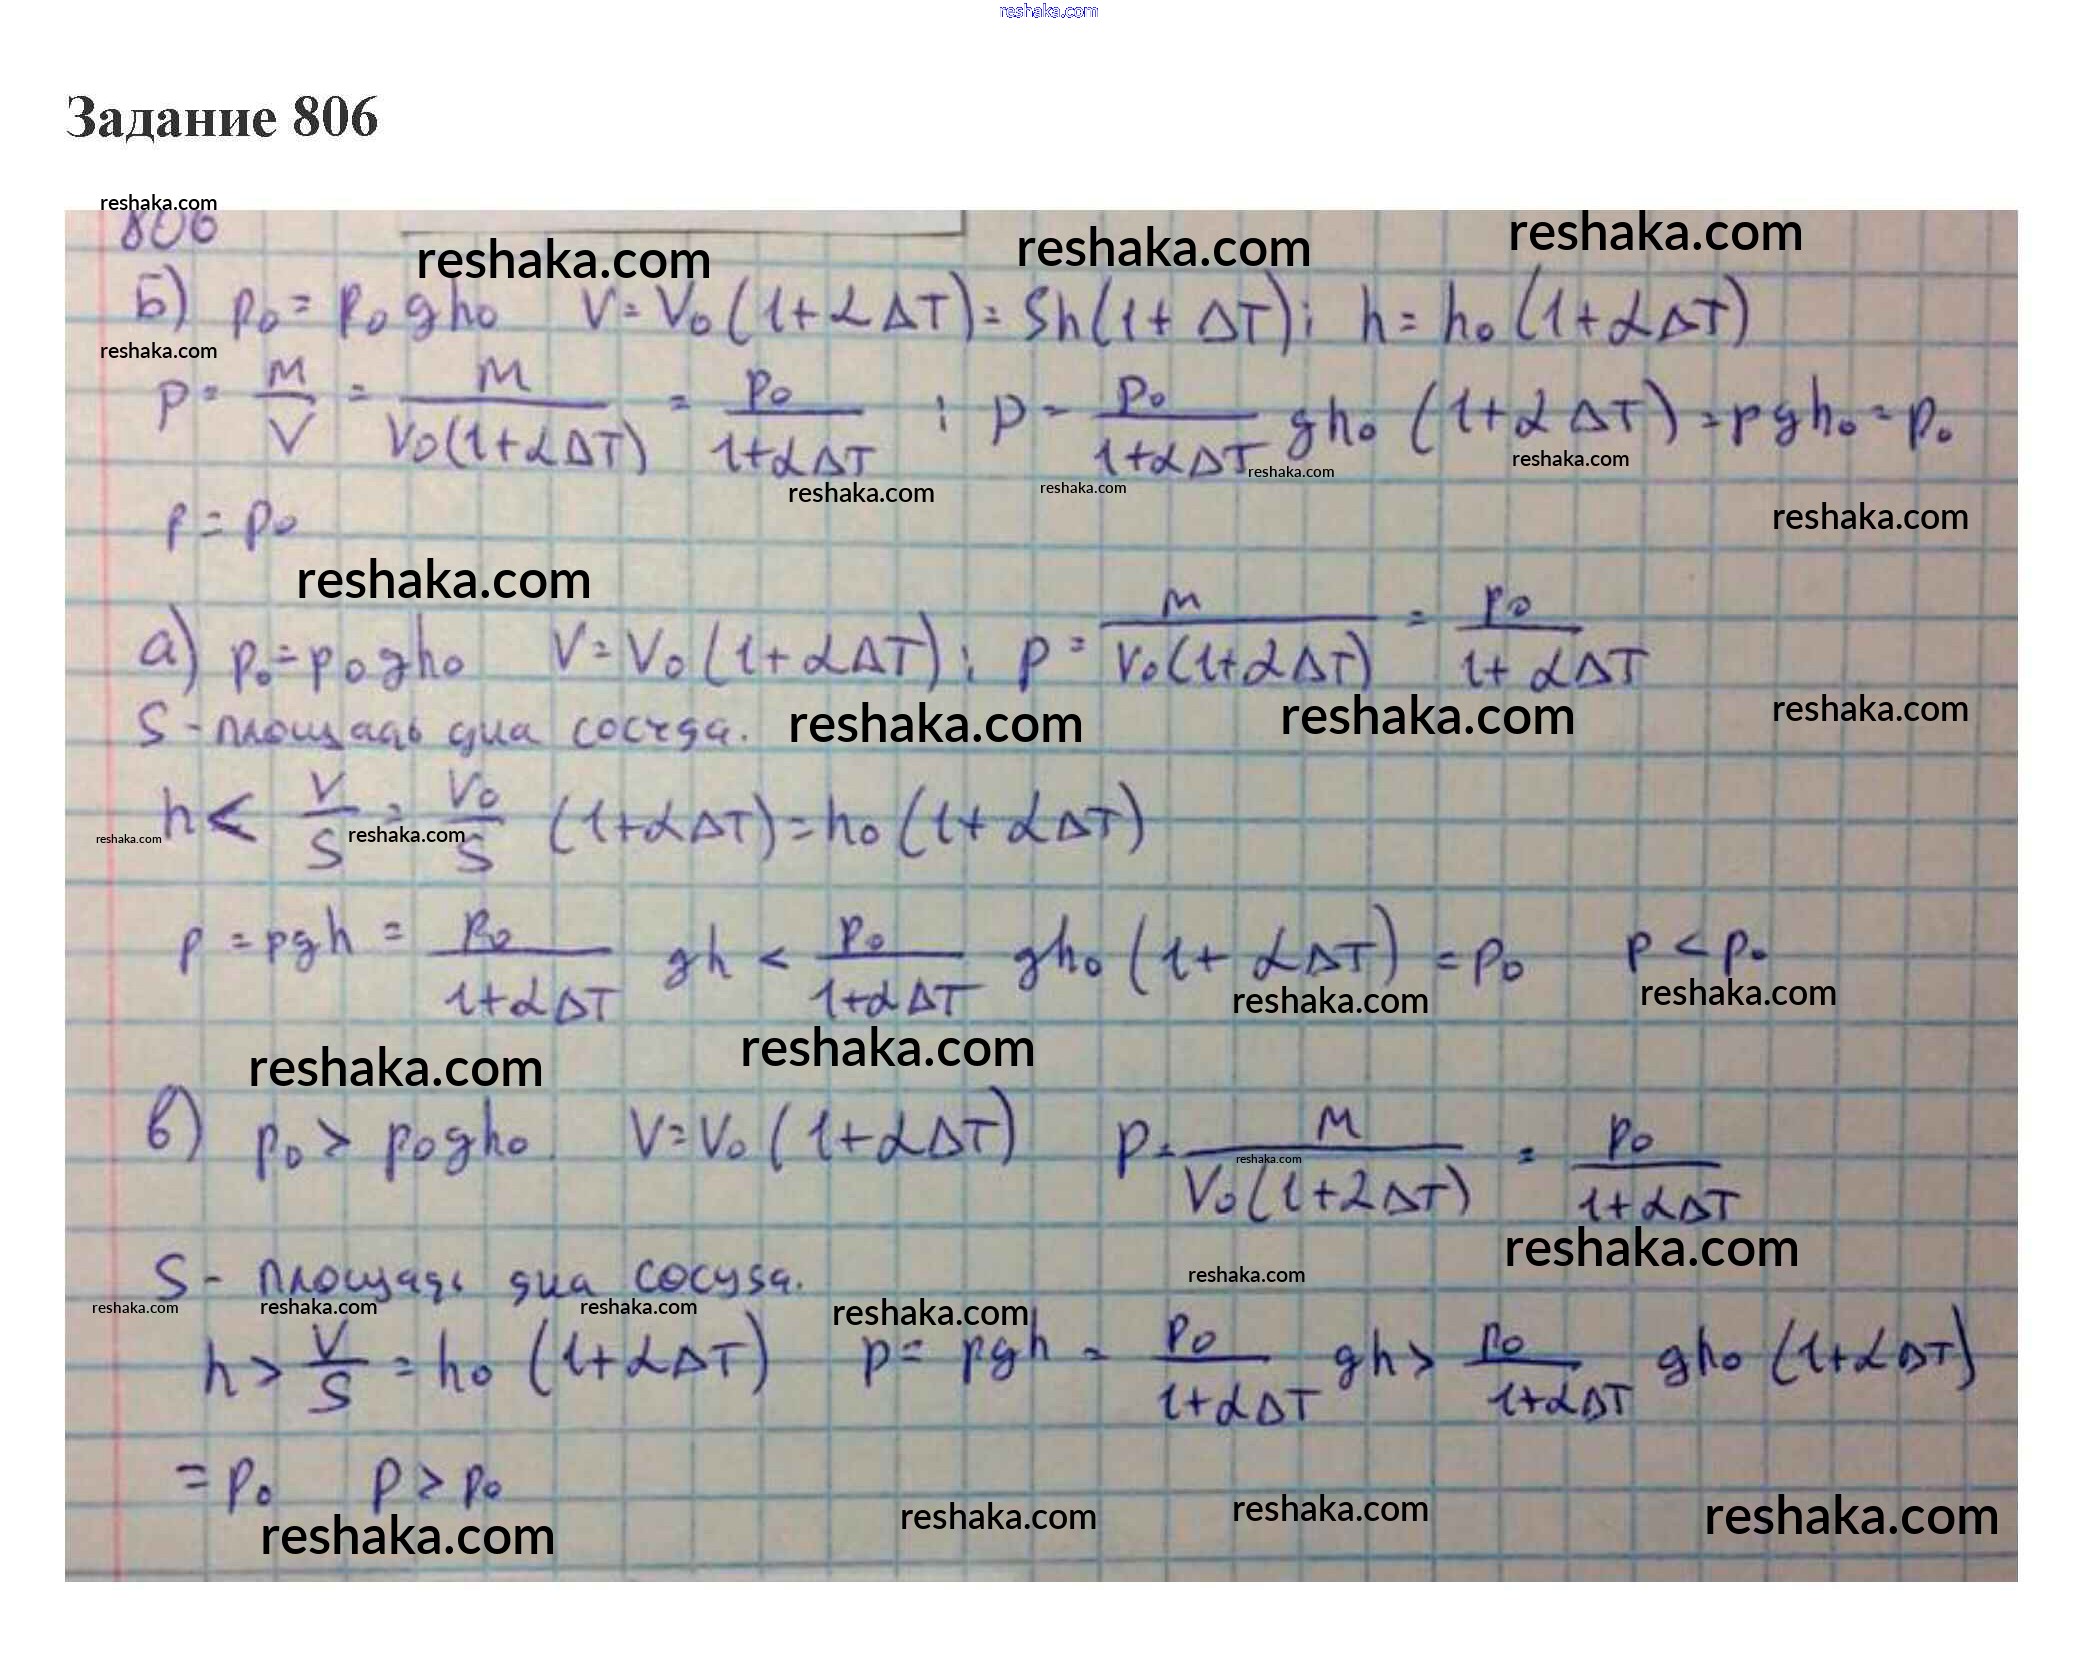 reshaka.com
Задание 806
reshaka.com
806
reshaka.com reshaka.com reshaka.com
Б) p₀ = ρ₀gh₀ V = V₀(1+αΔT) = Sh(1+ ΔT); h = h₀(1+αΔT)
reshaka.com
ρ = M/V = M/(V₀(1+αΔT)) = ρ₀/(1+αΔT) ; p = ρ₀/(1+αΔT) gh₀ (1+αΔT) = ρgh₀ = p₀
reshaka.com reshaka.com reshaka.com reshaka.com
p = p₀ reshaka.com
reshaka.com
а) p₀ = ρ₀gh₀ V = V₀(1+αΔT); ρ = M/(V₀(1+αΔT)) = ρ₀/(1+αΔT)
S - площадь дна сосуда. reshaka.com reshaka.com reshaka.com
h < V/S = V₀/S (1+αΔT) = h₀(1+αΔT)
reshaka.com reshaka.com
p = ρgh = ρ₀/(1+αΔT) gh < ρ₀/(1+αΔT) gh₀(1+αΔT) = p₀ p < p₀
reshaka.com reshaka.com
reshaka.com reshaka.com
в) p₀ > ρ₀gh₀ V = V₀(1+αΔT) ρ = M/(V₀(1+2ΔT)) = ρ₀/(1+αΔT)
reshaka.com
reshaka.com
S - площадь дна сосуда. reshaka.com
reshaka.com reshaka.com reshaka.com reshaka.com
h > V/S = h₀(1+αΔT) p = ρgh = ρ₀/(1+αΔT) gh > ρ₀/(1+αΔT) gh₀(1+αΔT)
= p₀ p > p₀
reshaka.com reshaka.com reshaka.com reshaka.com